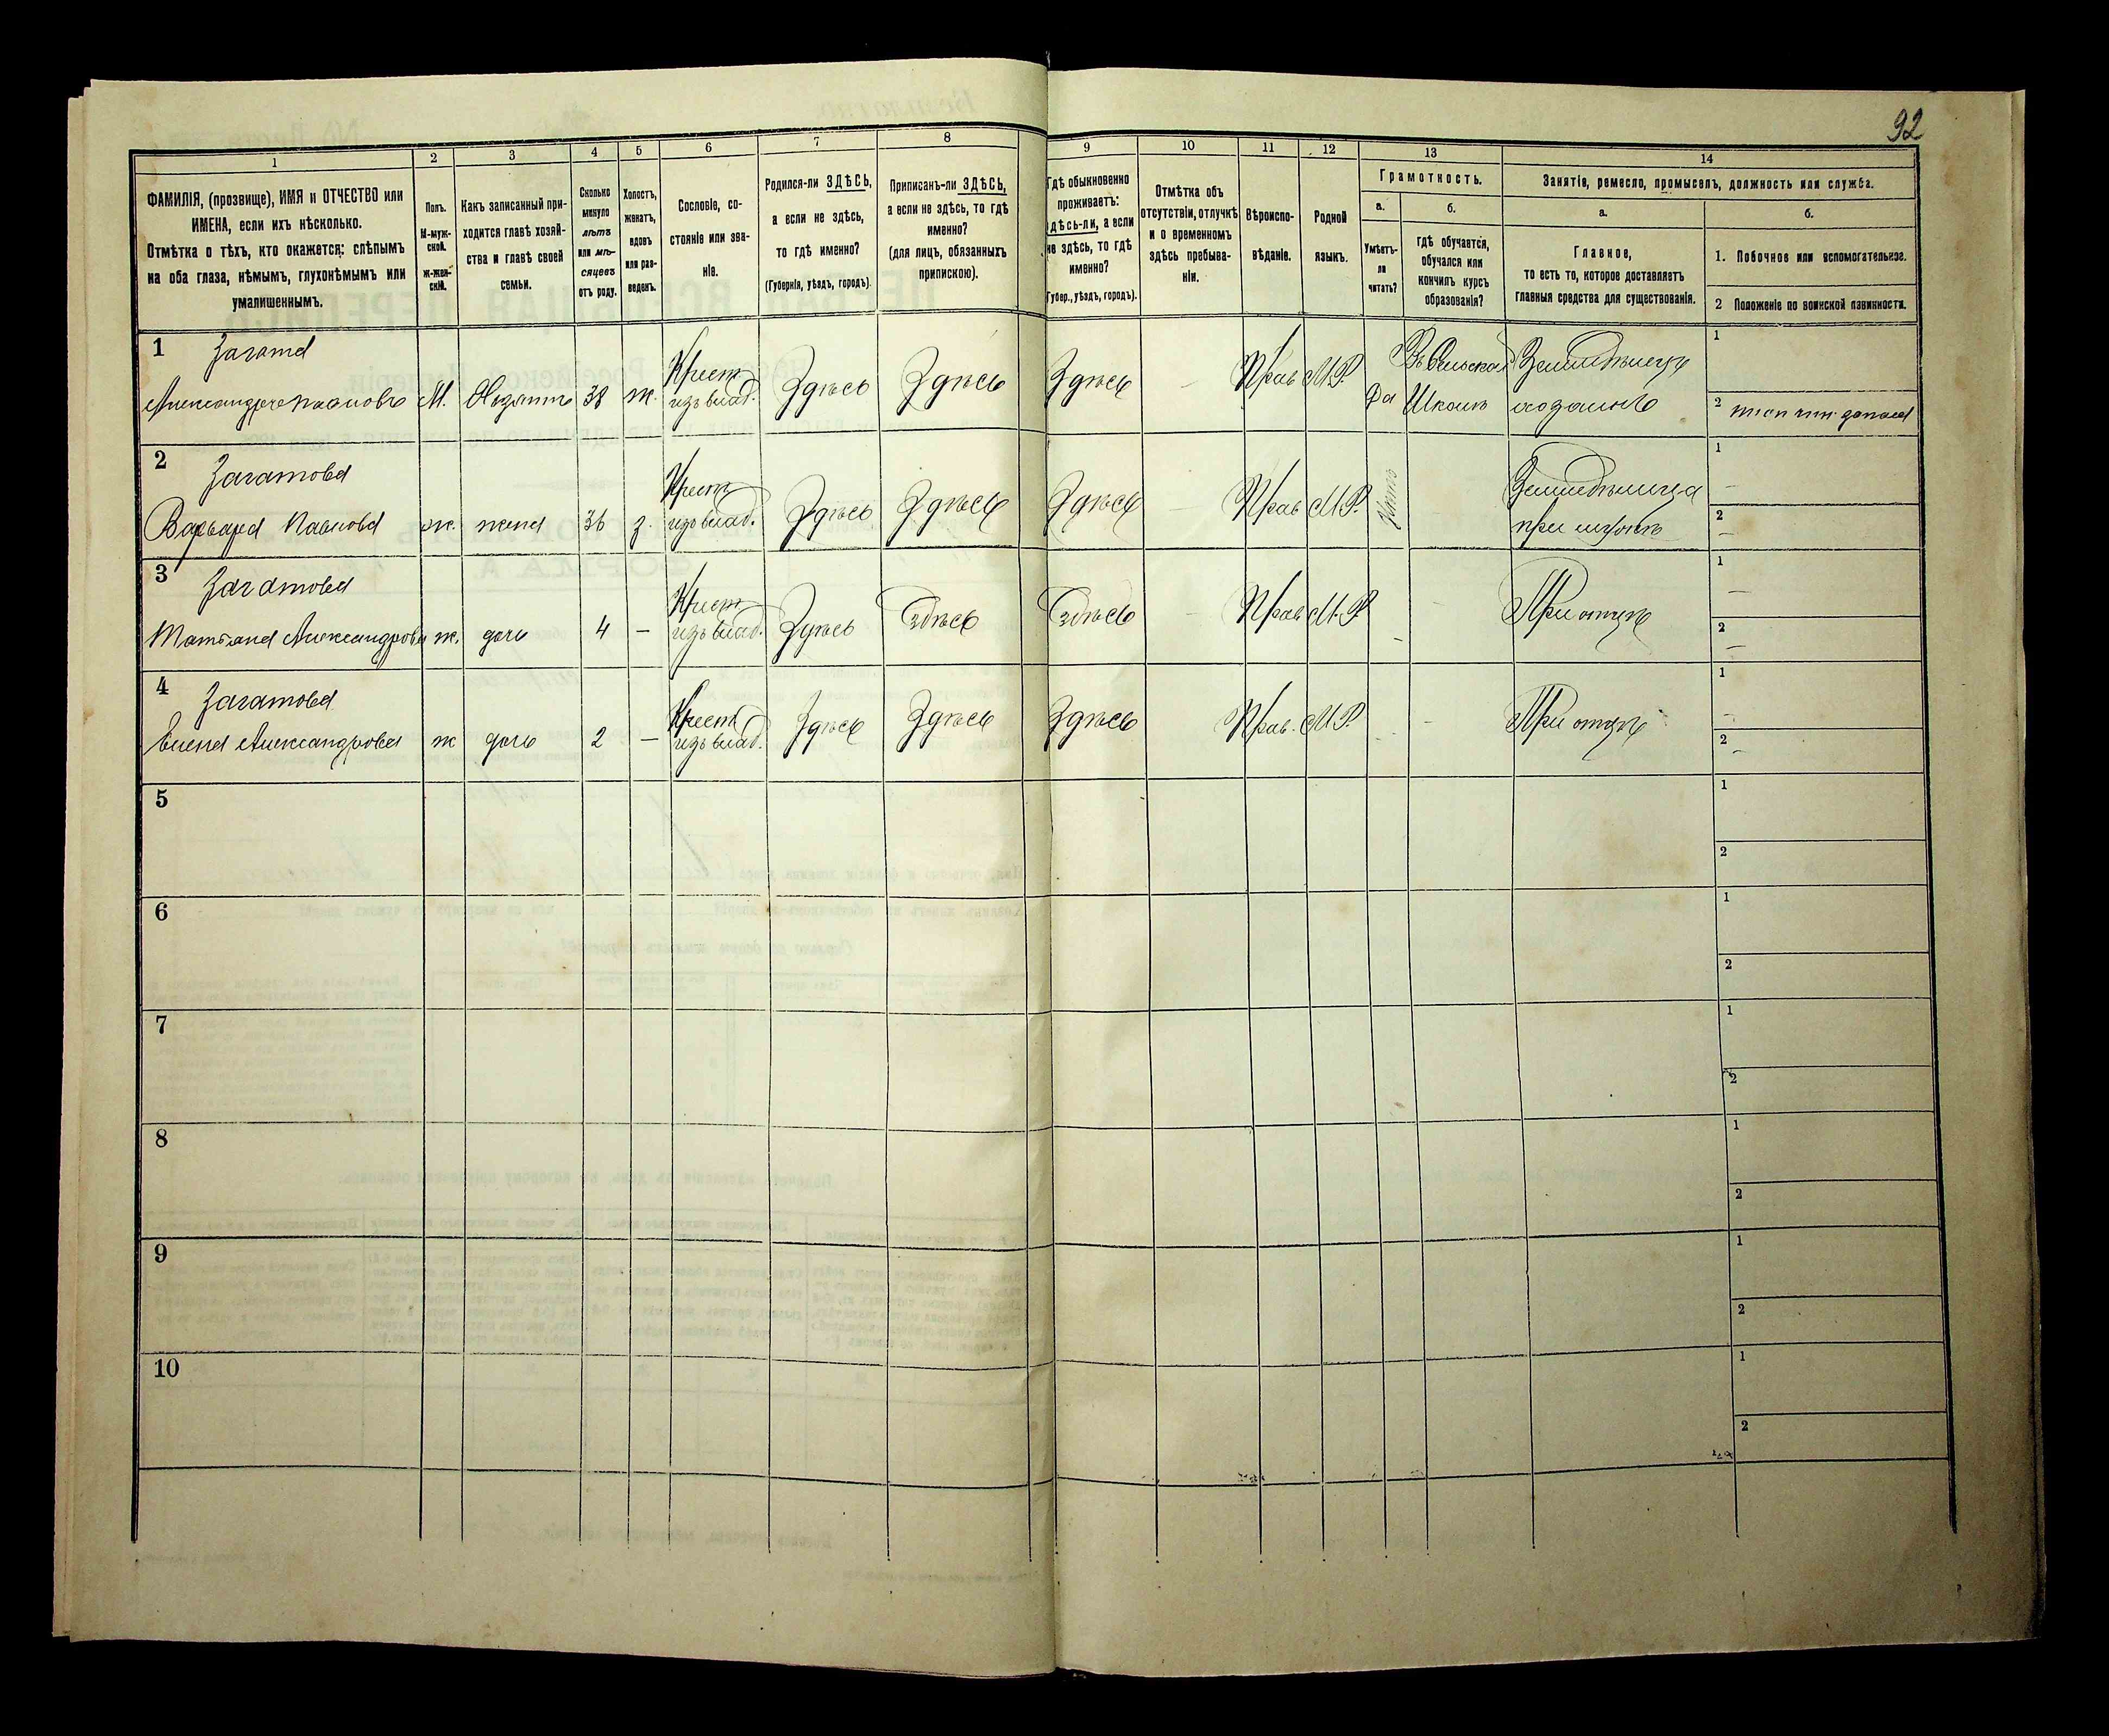 92
1
2
3
4
5
6
7
8
9
10
11
12
13
14
ФАМИЛІЯ, (прозвище), ИМЯ и ОТЧЕСТВО или
ИМЕНА, если ихъ нѣсколько.
Отмѣтка о тѣхъ, кто окажется: слѣпымъ
на оба глаза, нѣмымъ, глухонѣмымъ или
умалишеннымъ.
Полъ.
М-муж-
ской.
ж-жен-
скій.
Какъ записанный при-
ходится главѣ хозяй-
ства и главѣ своей
семьи.
Сколько
минуло
лѣтъ
или мѣ-
сяцевъ
отъ роду.
Холостъ,
женатъ,
вдовъ
или раз-
веденъ.
Сословіе, со-
стояніе или зва-
ніе.
Родился-ли ЗДѢСЬ,
а если не здѣсь,
то гдѣ именно?
(Губернія, уѣздъ, городъ).
Приписанъ-ли ЗДѢСЬ,
а если не здѣсь, то гдѣ
именно?
(для лицъ, обязанныхъ
припискою).
Гдѣ обыкновенно
проживаетъ:
здѣсь-ли, а если
не здѣсь, то гдѣ
именно?
(Губер., уѣздъ, городъ).
Отмѣтка объ
отсутствіи, отлучкѣ
и о временномъ
здѣсь пребыва-
ніи.
Вѣроиспо-
вѣданіе.
Родной
языкъ.
Грамотность.
а.
Умѣетъ-
ли
читать?
б.
гдѣ обучается,
обучался или
кончилъ курсъ
образованія?
Занятіе, ремесло, промыселъ, должность или служба.
а.
Главное,
то есть то, которое доставляетъ
главныя средства для существованія.
б.
1. Побочное или вспомогательное.
2 Положеніе по воинской повинности.
1
Александръ Павловъ М. Хозяинъ 38 ж. Крест. изъ влад. Здѣсь Здѣсь Здѣсь — Прав М.Р. Да Въ Сельской Школѣ
1
2
2 Загатова
Варвара Павлова ж. жена 36 з. Крест. изъ влад. Здѣсь Здѣсь Здѣсь — Прав М.Р. Нѣтъ —
при мужѣ
1 —
2 —
3 Загатова
Татьяна Александрова ж. дочь 4 — Крест. изъ влад. Здѣсь Здѣсь Здѣсь — Прав М.Р. — — При отцѣ
1 —
2 —
4 Загатова
Елена Александрова ж дочь 2 — Крест. изъ влад. Здѣсь Здѣсь Здѣсь Прав. М.Р. — — При отцѣ
1 —
2 —
5
1
2
6
1
2
7
1
2
8
1
2
9
1
2
10
1
2